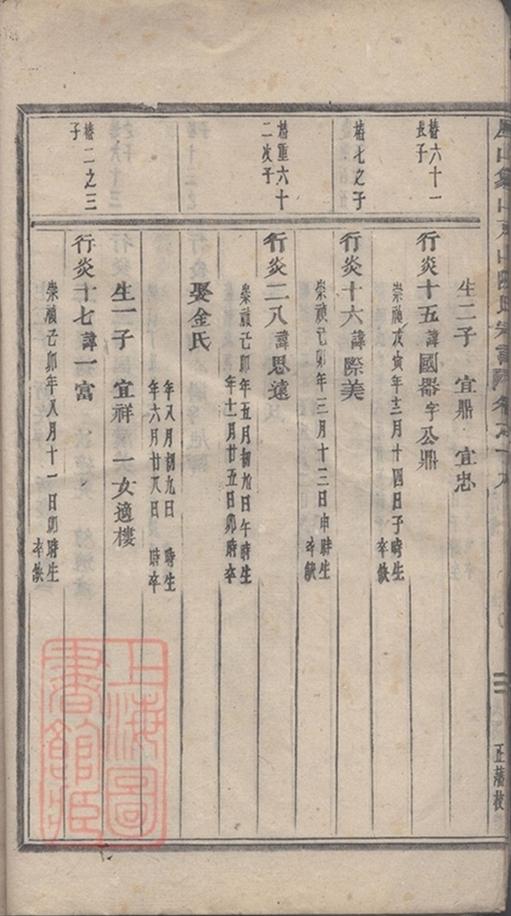 生二子 宜鼎 宜忠
椿六十一
長子
行炎十五諱國器字公鼎
崇禎戊寅年十二月十四日子時生
卒缺
椿七之子
行炎十六諱際美
崇禎己卯年三月十三日申時生
卒缺
椿重六十
二次子
行炎二八諱思遠
崇禎己卯年五月初九日午時生
年十一月廿五日卯時卒
娶金氏
年八月初九日 時生
年六月廿八日 時卒
生一子 宜祥 一女適樓
椿二之三
子
行炎十七諱一富
崇禎己卯年八月十一日卯時生
卒缺
正蕃枝
上海圖
書館